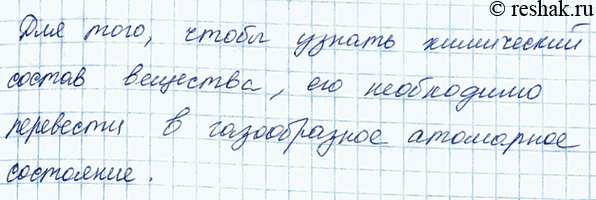 © reshak.ru
Для того, чтобы узнать химический
состав вещества, его необходимо
перевести в газообразное атомарное
состояние.